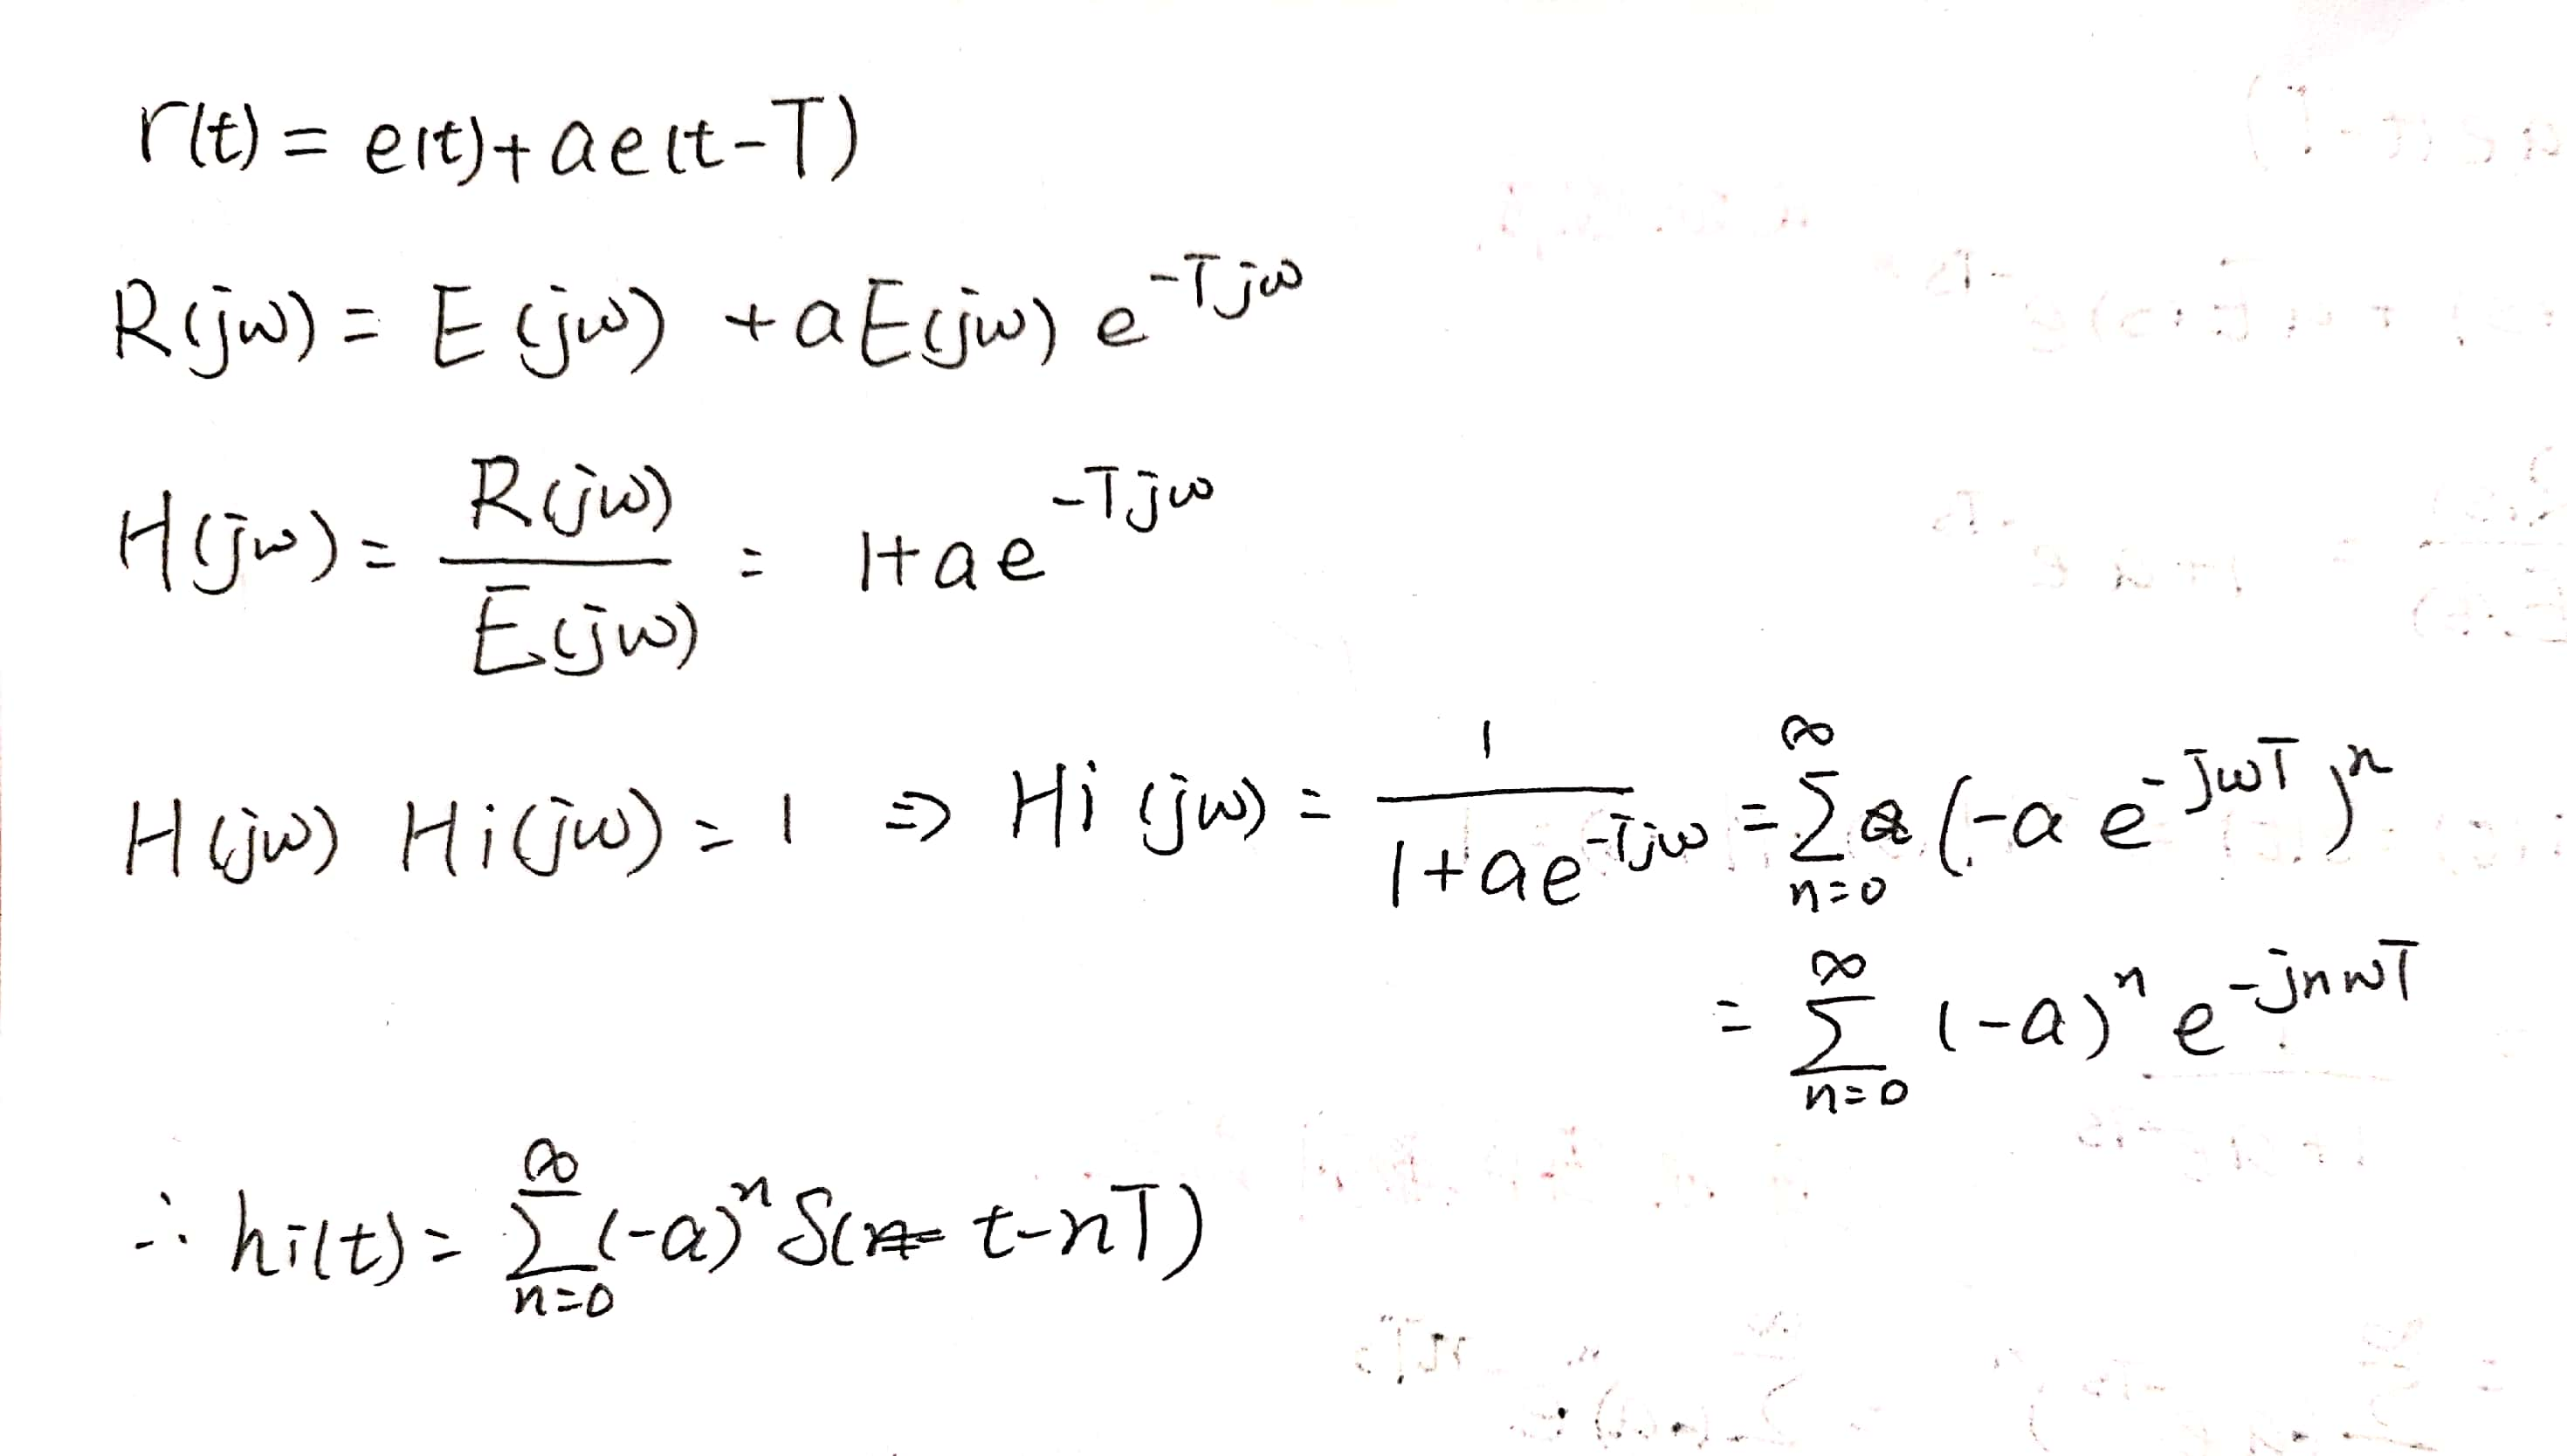 r(t) = e(t) + ae(t-T)
R(jω) = E(jω) + aE(jω) e^{-Tjω}
H(jω) = \frac{R(jω)}{E(jω)} = 1+ae^{-Tjω}
H(jω) Hi(jω) = 1 ⇒ Hi(jω) = \frac{1}{1+ae^{-Tjω}} = \sum_{n=0}^{∞} (-a e^{-jωT})^n
= \sum_{n=0}^{∞} (-a)^n e^{-jnωT}
∴ hi(t) = \sum_{n=0}^{∞} (-a)^n δ(t-nT)